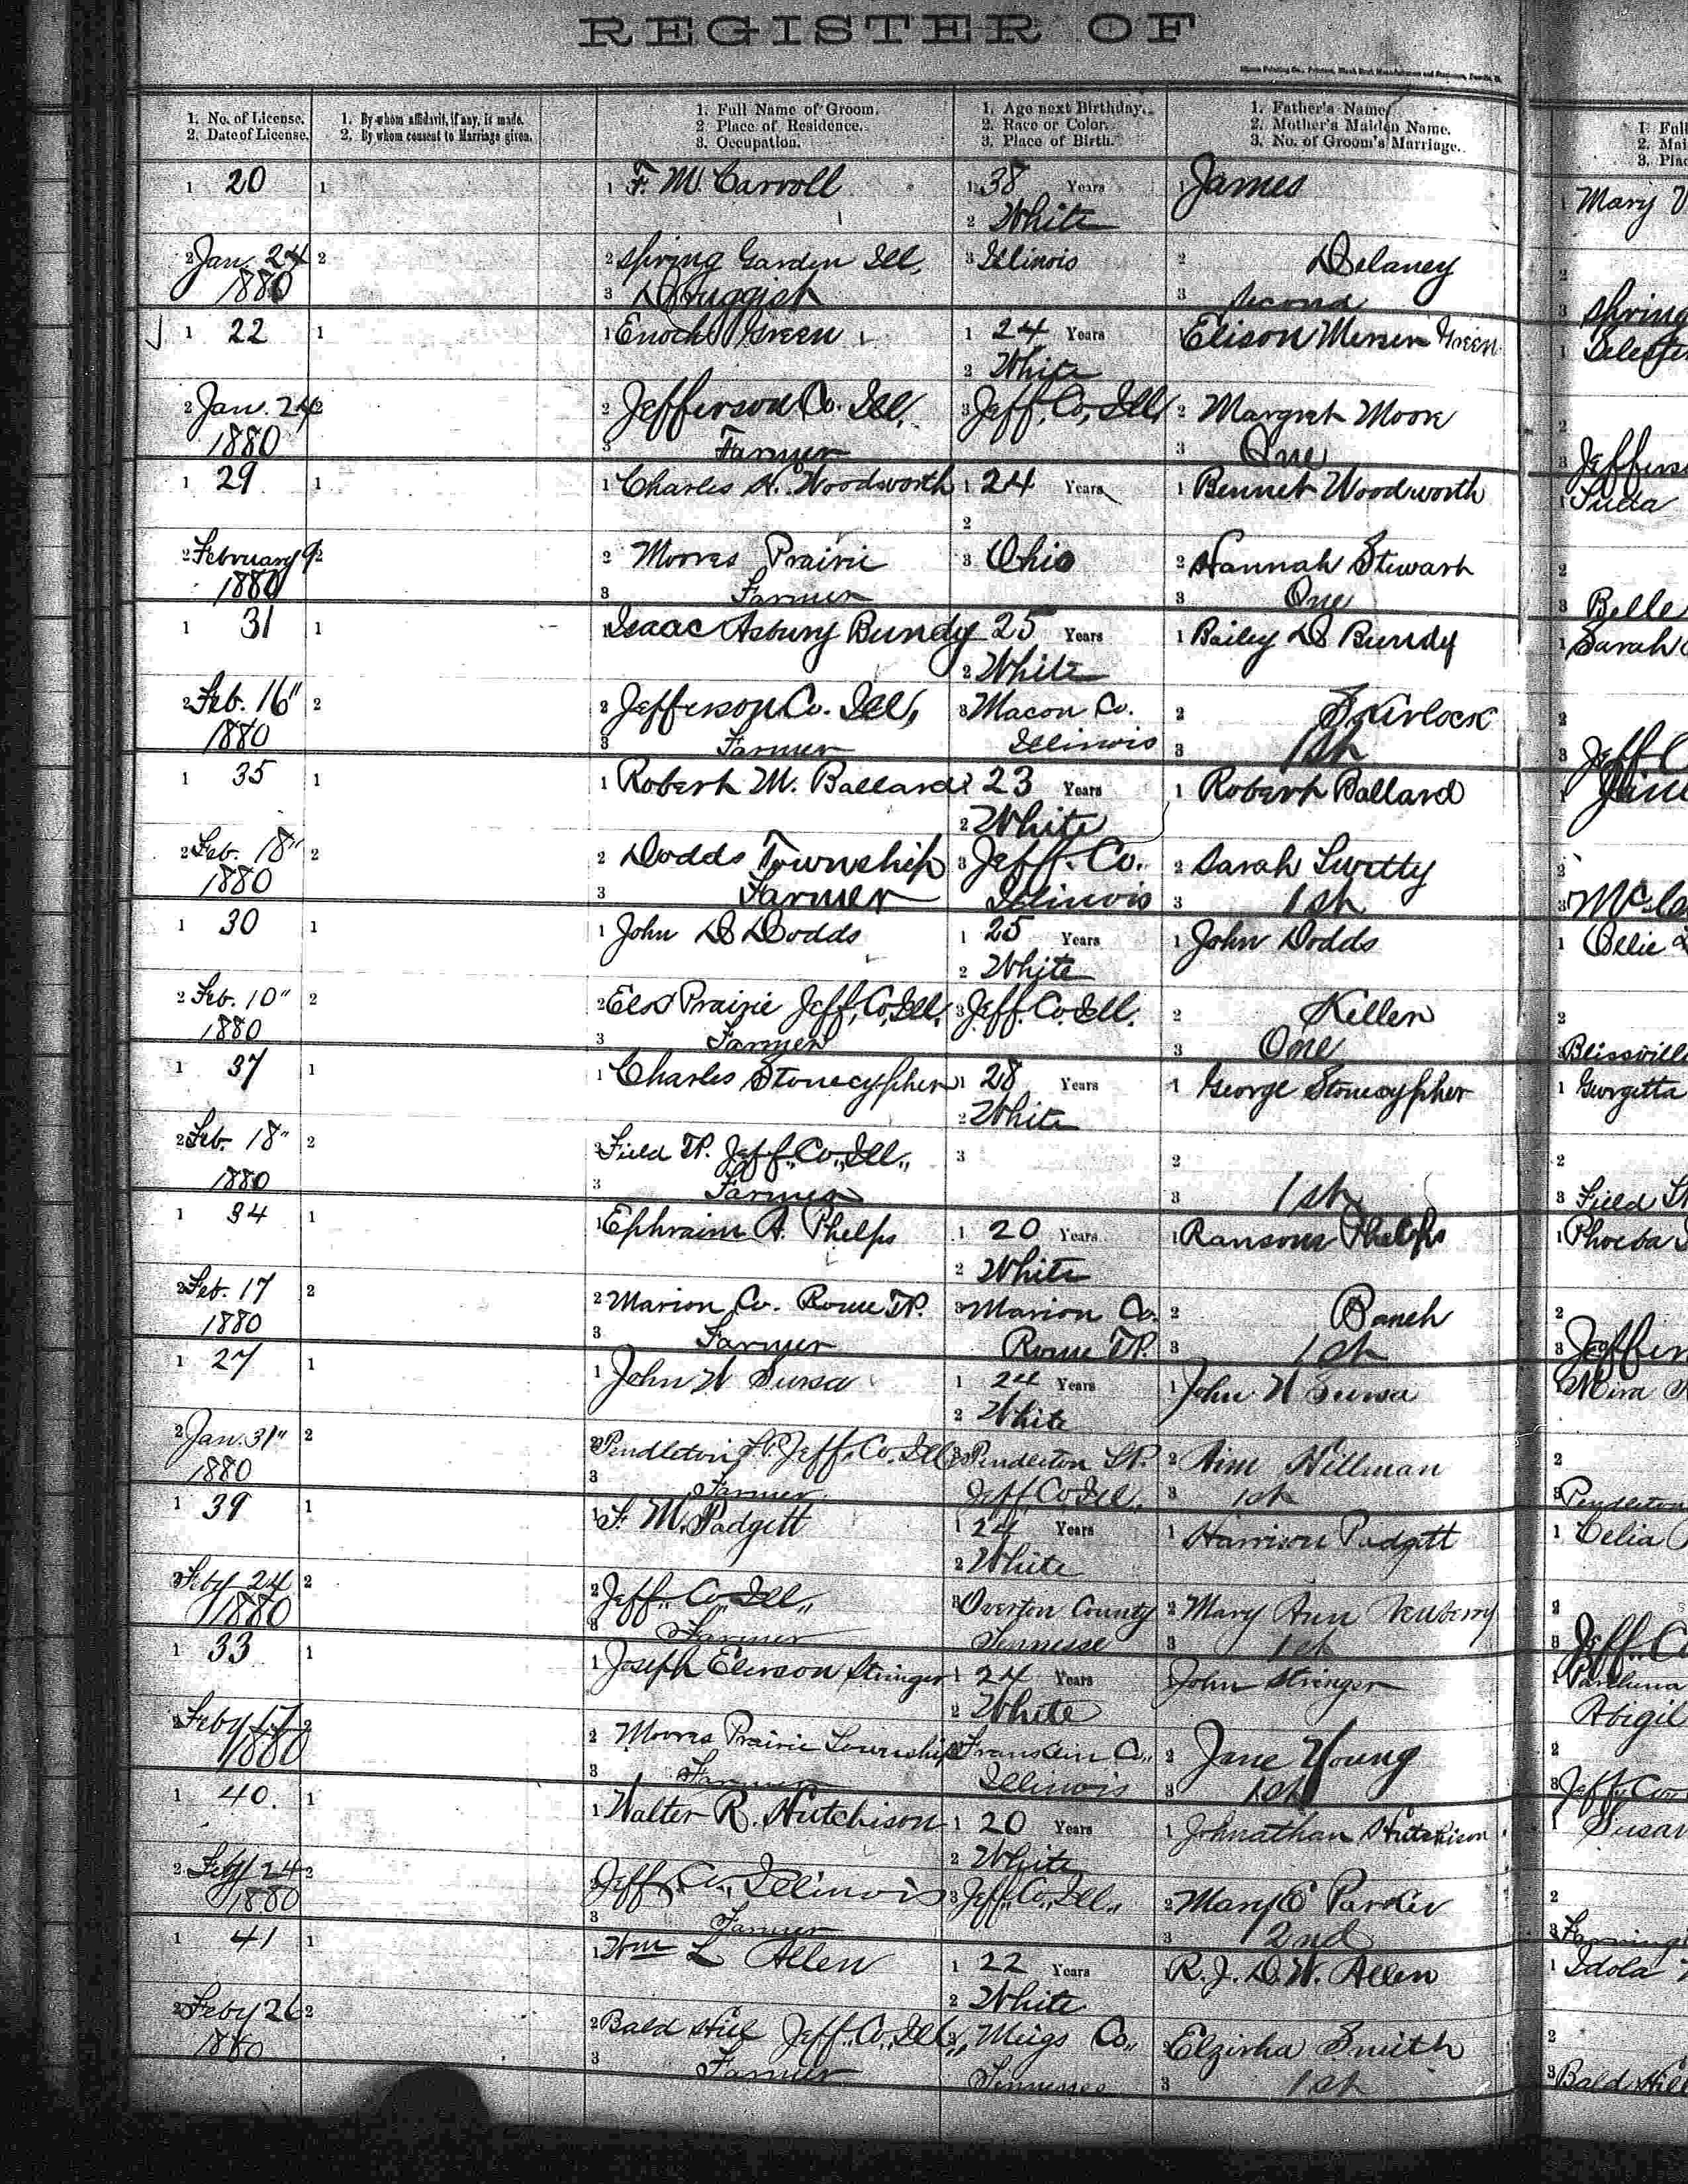 REGISTER OF
1. No. of License.
2. Date of License.
1. By whom affidavit, if any, is made.
2. By whom consent to Marriage given.
1. Full Name of Groom.
2. Place of Residence.
3. Occupation.
1. Age next Birthday.
2. Race or Color.
3. Place of Birth.
1. Father's Name
2. Mother's Maiden Name.
3. No. of Groom's Marriage.
1. Full
2. Mai
3. Plac
1 20 1 1 F. M. Carroll 1 38 Years 1 James 1 Mary
2 White
2 Jan. 24 2 2 Spring Garden Ill. 3 Illinois 2 Delaney 2
1880 3 Druggist 3 Second 3 Spring
1 22 1 1 Enoch Green 1 24 Years 1 Elison Green 1
2 White
2 Jan. 24 2 2 Jefferson Co. Ill. 3 Jeff. Co. Ill 2 Margret Moore 2
1880 3 Farmer 3 One 3 Jeffers
1 29 1 1 Charles H. Woodsworth 1 24 Years 1 Bennet Woodworth 1
2
2 February 9 2 2 Moores Prairie 3 Ohio 2 Hannah Stewart 2
1880 3 Farmer 3 One 3 Belle
1 31 1 1 Isaac Asbury Bundy 25 Years 1 Bailey D Bundy 1 Sarah
2 White
2 Feb. 16" 2 2 Jefferson Co. Ill, 3 Macon Co. 2 2
1880 3 Farmer Illinois 3 1st 3 Jeff C
1 35 1 1 Robert M. Ballard 23 Years 1 Robert Ballard 1
2 White
2 Feb. 18" 2 2 Dodds Township 3 Jeff. Co. 2 Sarah 2
1880 3 Farmer Illinois 3 1st 3
1 30 1 1 John D Dodds 1 25 Years 1 John Dodds 1 Ollie
2 White
2 Feb. 10" 2 2 Elk Prairie Jeff. Co. Ill. 3 Jeff. Co. Ill. 2 2
1880 3 Farmer 3 One 3 Blissville
1 37 1 1 Charles Stonecypher 1 28 Years 1 George Stonecypher 1 Georgetta
2 White
2 Feb. 18" 2 2 Field TP. Jeff. Co., Ill., 3 2 2
1880 3 Farmer 3 1st 3 Field
1 34 1 1 Ephraim A. Phelps 1 20 Years 1 Ransom Phelps 1 Phoeba
2 White
2 Feb. 17 2 2 Marion Co. Rome TP. 3 Marion Co. 2 2
1880 3 Farmer Rome TP. 3 1st 3 Jeffer
1 27 1 1 John W Sursa 1 24 Years 1 John W Sursa 1
2 White
2 Jan. 31" 2 2 Pendleton TP. Jeff. Co. Ill 3 Pendleton TP. 2 Hillman 2
1880 3 Farmer Jeff Co Ill. 3 1st 3 Pendleton
1 39 1 1 F. M. Padgett 1 24 Years 1 Harrison Padgett 1 Celia
2 White
2 Feby 24 2 2 Jeff. Co. Ill., 3 Overton County 2 Mary Ann Newberry 2
1880 3 Farmer Tennesse 3 1st 3 Jeff. Co
1 33 1 1 Joseph Stringer 1 24 Years 1 John Stringer 1
2 White Abigil
2 Feby 17 2 2 Moores Prairie Township 3 Franklin Co., 2 Jane Young 2
1880 3 Farmer Illinois 3 1st 3 Jeff. Co
1 40. 1 1 Walter R. Hutchison 1 20 Years 1 Johnathan Hutchison 1 Susan
2 White
2 Feby 24 2 2 Jeff. Co., Illinois 3 Jeff. Co., Ill., 2 Mary E Parker 2
1880 3 Farmer 3 2nd 3
1 41 1 1 Wm L Allen 1 22 Years R. J. D. W. Allen 1 Idola
2 White
2 Feby 26 2 2 Bald Hill Jeff. Co., Ill., 3 Meigs Co., 2 Elzirha Smith 2
1880 3 Farmer Tennessee 3 1st 3 Bald Hill